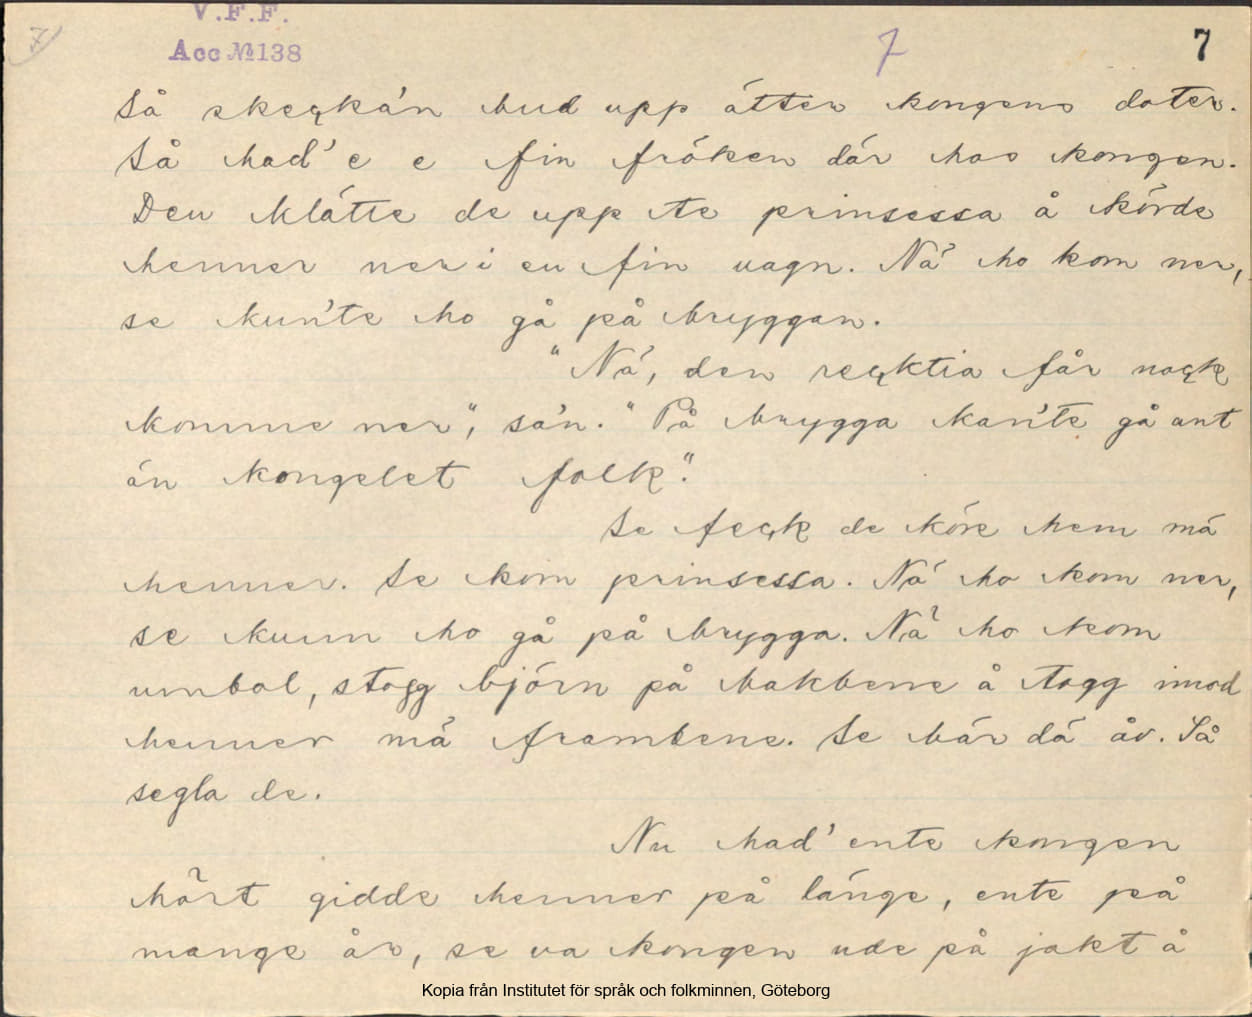 V.F.F.
Acc № 138
7
7
7
Så skecká'n bud upp átter kongens doter.
Så had' e e fin fröken där hos kongen.
Den klátte de upp te prinsessa å körde
henner ner i en fin vagn. Ná ho kom ner,
se kun'te ho gå på bryggan.
"Ná, den recktia får nock
komme ner", sá'n. "På brygga kan'te gå ant
án kongelet folk."
Se feck de köre hem má
henner. Se kom prinsessa. Ná ho kom ner,
se kunn ho gå på brygga. Ná ho kom
umbol, stogg björn på bakbene å togg imod
henner má frambene. Se bár dá åv. Så
segla de.
Nu had' ente kongen
hört gidde henner på länge, ente på
mange år, se va kongen ude på jakt å
Kopia från Institutet för språk och folkminnen, Göteborg